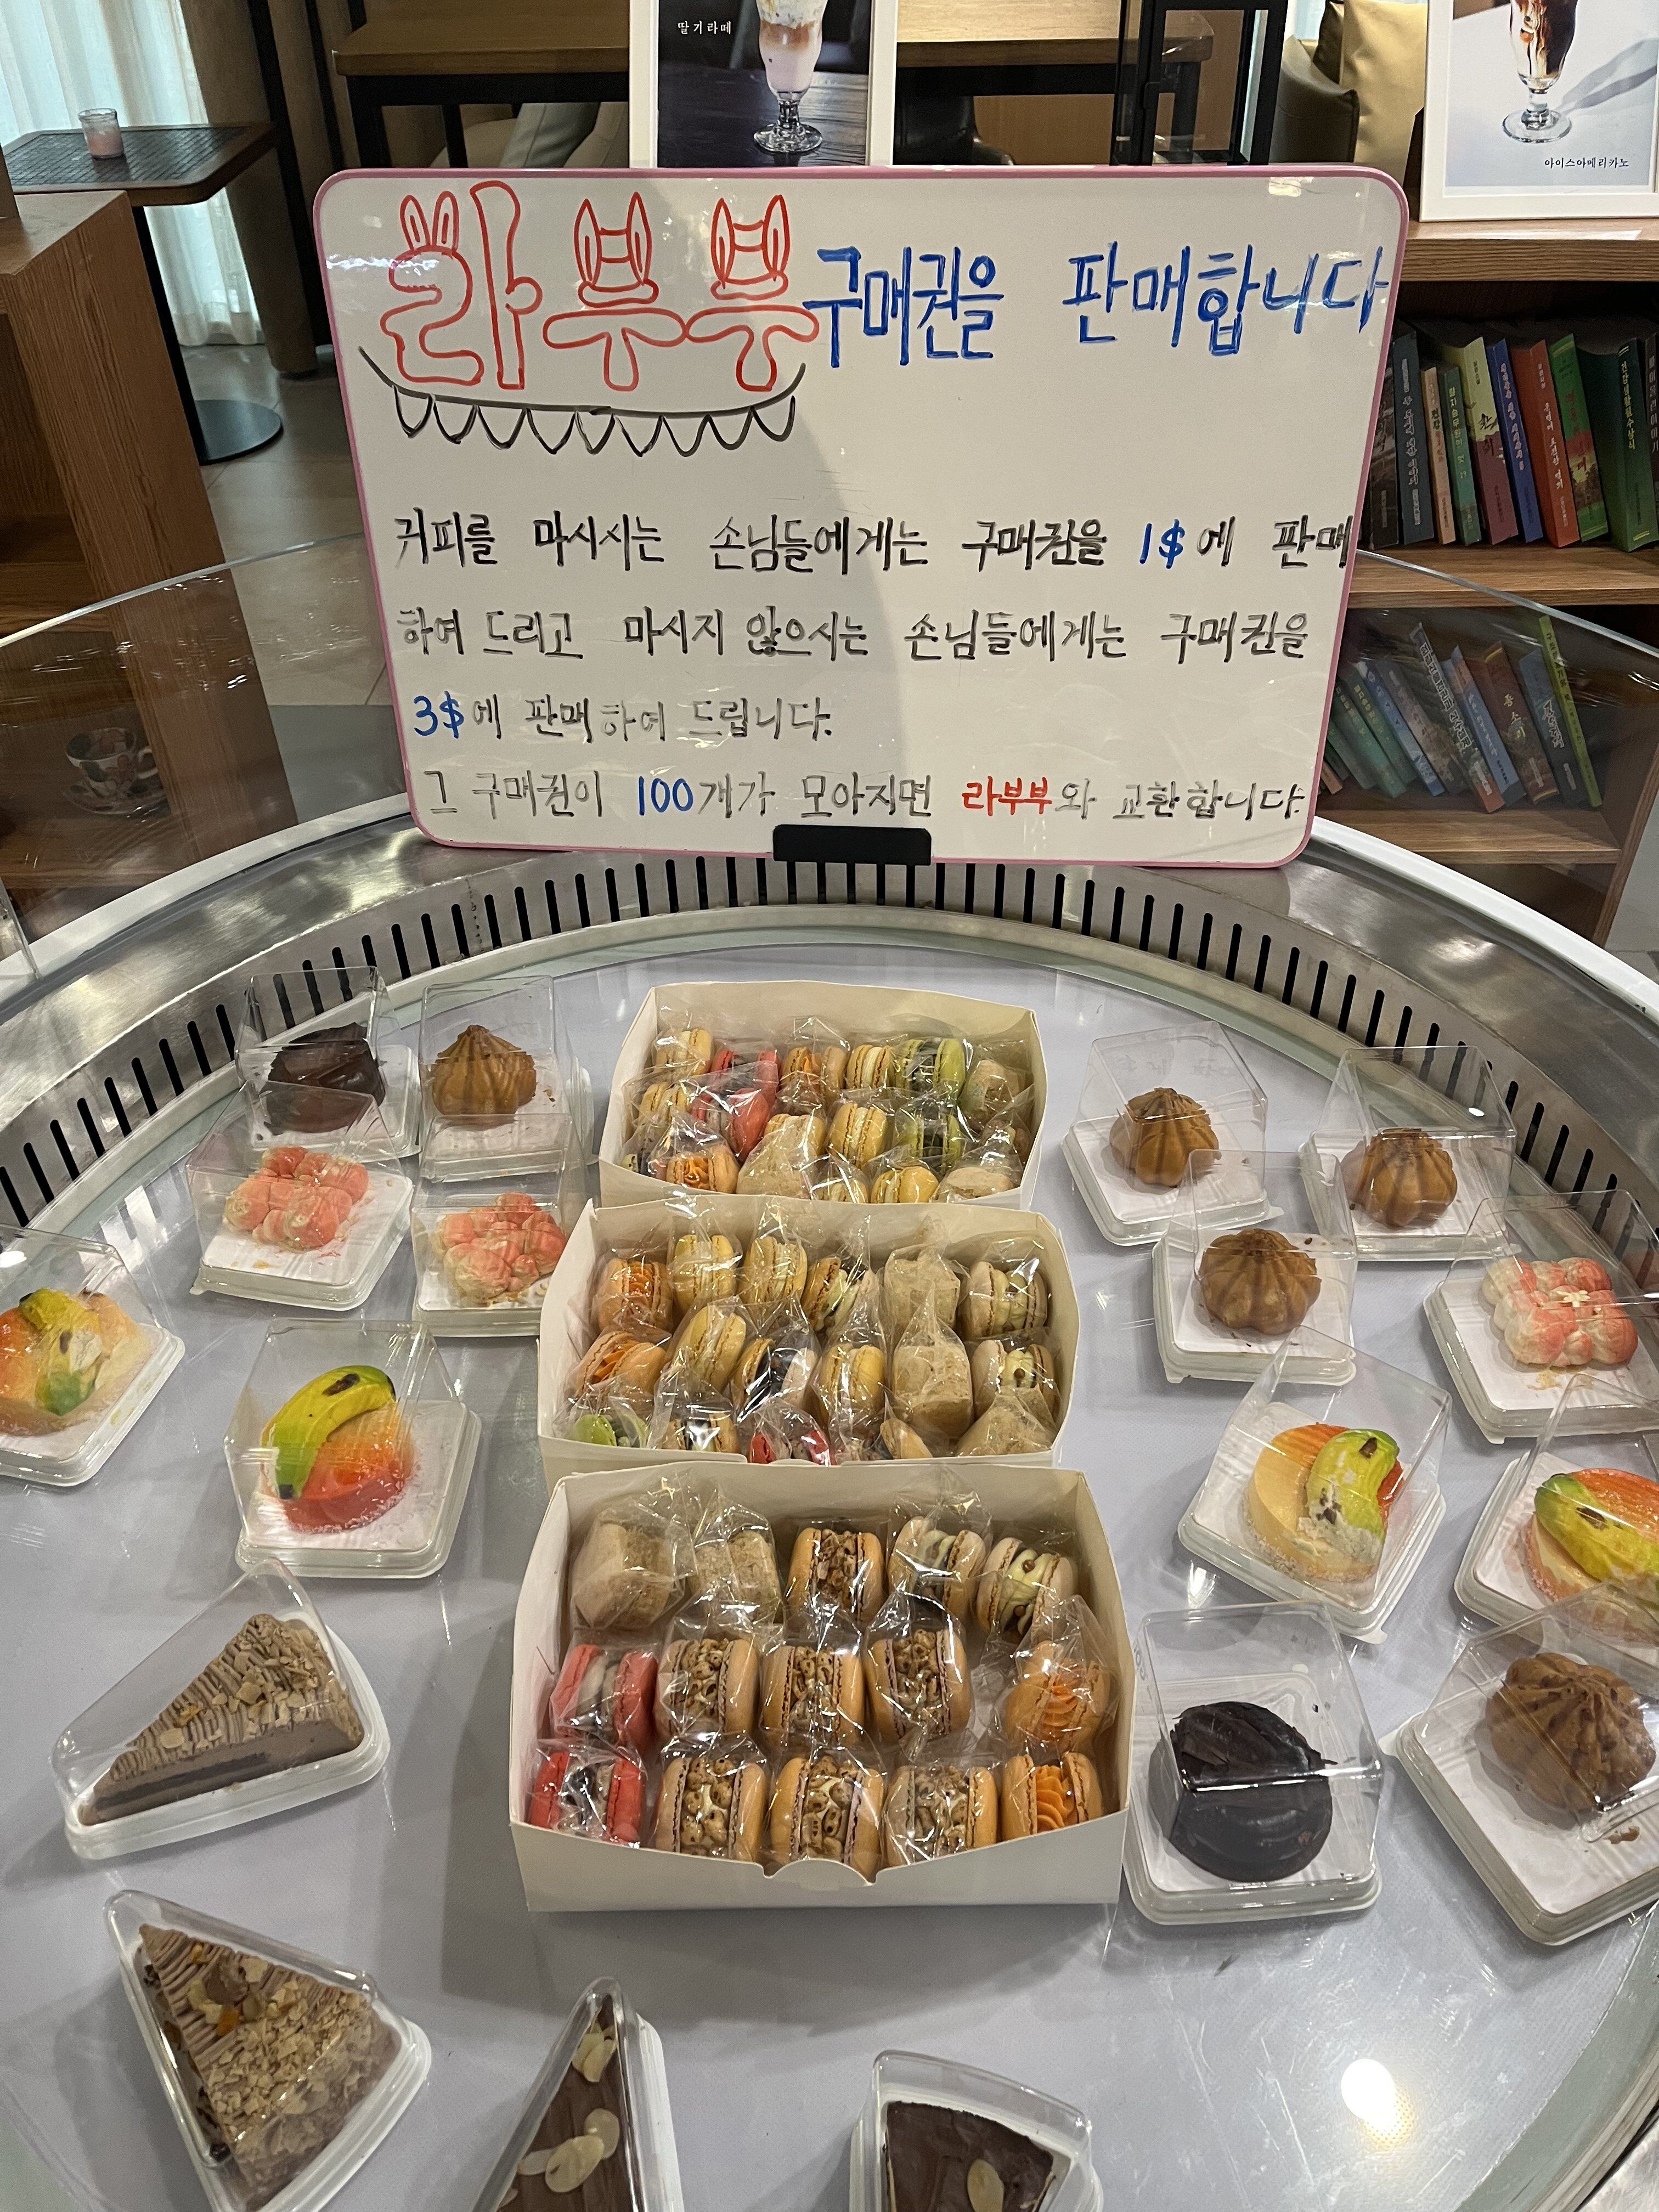 딸기라떼
아이스아메리카노
라부부 구매권을 판매합니다
커피를 마시시는 손님들에게는 구매권을 1$에 판매
하여 드리고 마시지 않으시는 손님들에게는 구매권을
3$에 판매하여 드립니다.
그 구매권이 100개가 모아지면 라부부와 교환합니다.